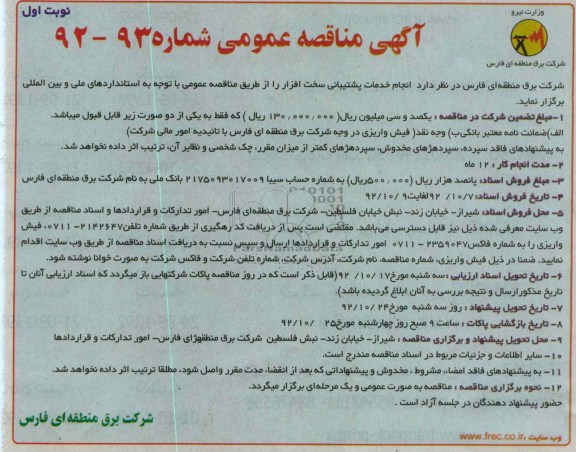 نوبت اول
وزارت نیرو
شرکت برق منطقه ای فارس
آگهی مناقصه عمومی شماره ۹۳ - ۹۲
شرکت برق منطقه‌ای فارس در نظر دارد انجام خدمات پشتیبانی سخت افزار را از طریق مناقصه عمومی با توجه به استانداردهای ملی و بین المللی
برگزار نماید.
۱-مبلغ تضمین شرکت در مناقصه : یکصد و سی میلیون ریال( ۱۳۰,۰۰۰,۰۰۰ ریال ) که فقط به یکی از دو صورت زیر قابل قبول میباشد.
الف)ضمانت نامه معتبر بانکی ب) وجه نقد( فیش واریزی در وجه شرکت برق منطقه ای فارس با تائیدیه امور مالی شرکت)
به پیشنهادهای فاقد سپرده، سپرده‍های مخدوش، سپرده‍های کمتر از میزان مقرر، چک شخصی و نظایر آن، ترتیب اثر داده نخواهد شد.
۲- مدت انجام کار : ۱۲ ماه
۳- مبلغ فروش اسناد: پانصد هزار ریال (۵۰۰,۰۰۰ریال) به شماره حساب سیبا ۲۱۷۵۰۹۳۰۱۷۰۰۹ بانک ملی به نام شرکت برق منطقه ای فارس
۴- تاریخ فروش اسناد: ۹۲/۱۰/۷ لغایت ۹۲/۱۰/۹
۵- محل فروش اسناد: شیراز- خیابان زند- نبش خیابان فلسطین- شرکت برق منطقه‌ای فارس- امور تدارکات و قراردادها و اسناد مناقصه از طریق
وب سایت معرفی شده ذیل نیز قابل دسترسی می‌باشد. مقتضی است پس از دریافت کد رهگیری از طریق شماره تلفن ۲۱۴۲۶۴۷-۰۷۱۱، فیش
واریزی را به شماره فاکس ۲۳۵۹۰۴۷-۰۷۱۱ امور تدارکات و قراردادها ارسال و سپس نسبت به دریافت اسناد مناقصه از طریق وب سایت اقدام
نمایید. ضمنا در ذیل فیش واریزی، شماره مناقصه، نام شرکت، آدرس شرکت، شماره تلفن شرکت و فاکس شرکت به صورت خوانا نوشته شود.
۶- تاریخ تحویل اسناد ارزیابی :سه شنبه مورخ ۹۲/۱۰/۱۷(قابل ذکر است که در روز مناقصه پاکات شرکتهایی باز میگردد که اسناد ارزیابی آنان تا
تاریخ مذکور ارسال و نتیجه بررسی به آنان ابلاغ گردیده باشد).
۷- تاریخ تحویل پیشنهاد : روز سه شنبه مورخ ۹۲/۱۰/۲۴
۸- تاریخ بازگشایی پاکات : ساعت ۹ صبح روز چهارشنبه مورخ ۹۲/۱۰/۲۵
۹- محل تحویل پیشنهاد و برگزاری مناقصه : شیراز- خیابان زند- نبش فلسطین شرکت برق منطقه‍ژای فارس- امور تدارکات و قراردادها
۱۰- سایر اطلاعات و جزئیات مربوط در اسناد مناقصه مندرج است.
۱۱- به پیشنهادهای فاقد امضاء، مشروط ، مخدوش و پیشنهاداتی که بعد از انقضاء مدت مقرر واصل شود، مطلقا ترتیب اثر داده نخواهد شد.
۱۲- نحوه برگزاری مناقصه : مناقصه به صورت عمومی و یک مرحله ای برگزار میگردد.
حضور پیشنهاد دهندگان در جلسه آزاد است .
شرکت برق منطقه ای فارس
وب سایت :www.frec.co.ir